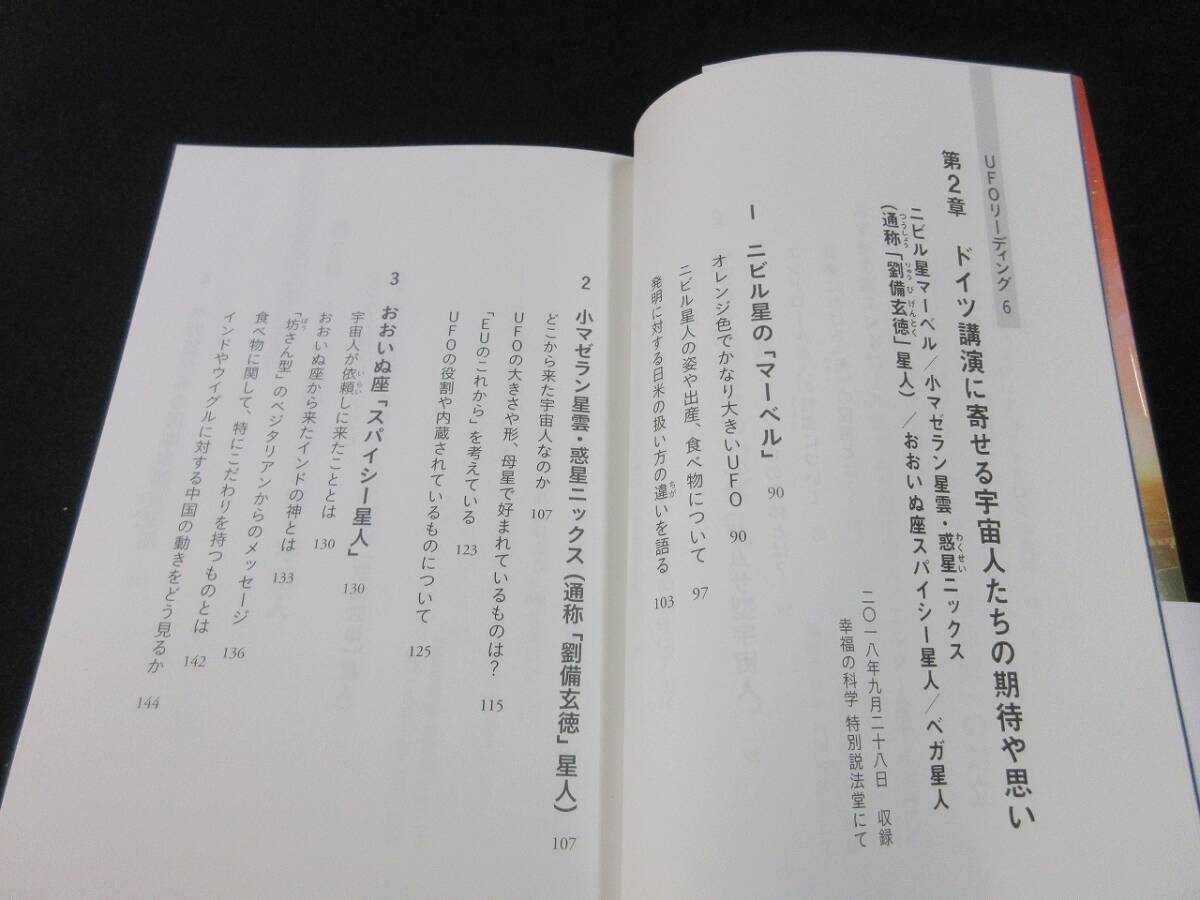 UFOリーディング 6
第2章 ドイツ講演に寄せる宇宙人たちの期待や思い
ニビル星マーベル/小マゼラン星雲・惑星ニックス
(通称「劉備玄徳」星人)/おおいぬ座スパイシー星人/ベガ星人
二〇一八年九月二十八日 収録
幸福の科学 特別説法堂にて
1 ニビル星の「マーベル」 90
オレンジ色でかなり大きいUFO 90
ニビル星人の姿や出産、食べ物について 97
発明に対する日米の扱い方の違いを語る 103
2 小マゼラン星雲・惑星ニックス(通称「劉備玄徳」星人) 107
どこから来た宇宙人なのか 107
UFOの大きさや形、母星で好まれているものは? 115
「EUのこれから」を考えている 123
UFOの役割や内蔵されているものについて 125
3 おおいぬ座「スパイシー星人」 130
宇宙人が依頼しに来たこととは 130
おおいぬ座から来たインドの神とは 133
「坊さん型」のベジタリアンからのメッセージ 136
食べ物に関して、特にこだわりを持つものとは 142
インドやウイグルに対する中国の動きをどう見るか 144